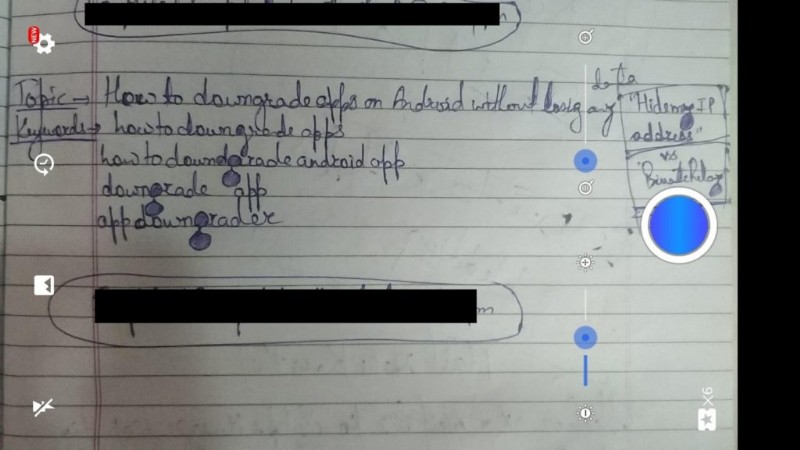 data
Topic → How to downgrade apps on Android without losig any
Keywords → how to downgrade apps
how to downdgrade android app
downgrade app
app downgrader
"Hide my IP
address"
vs
NEW
X6